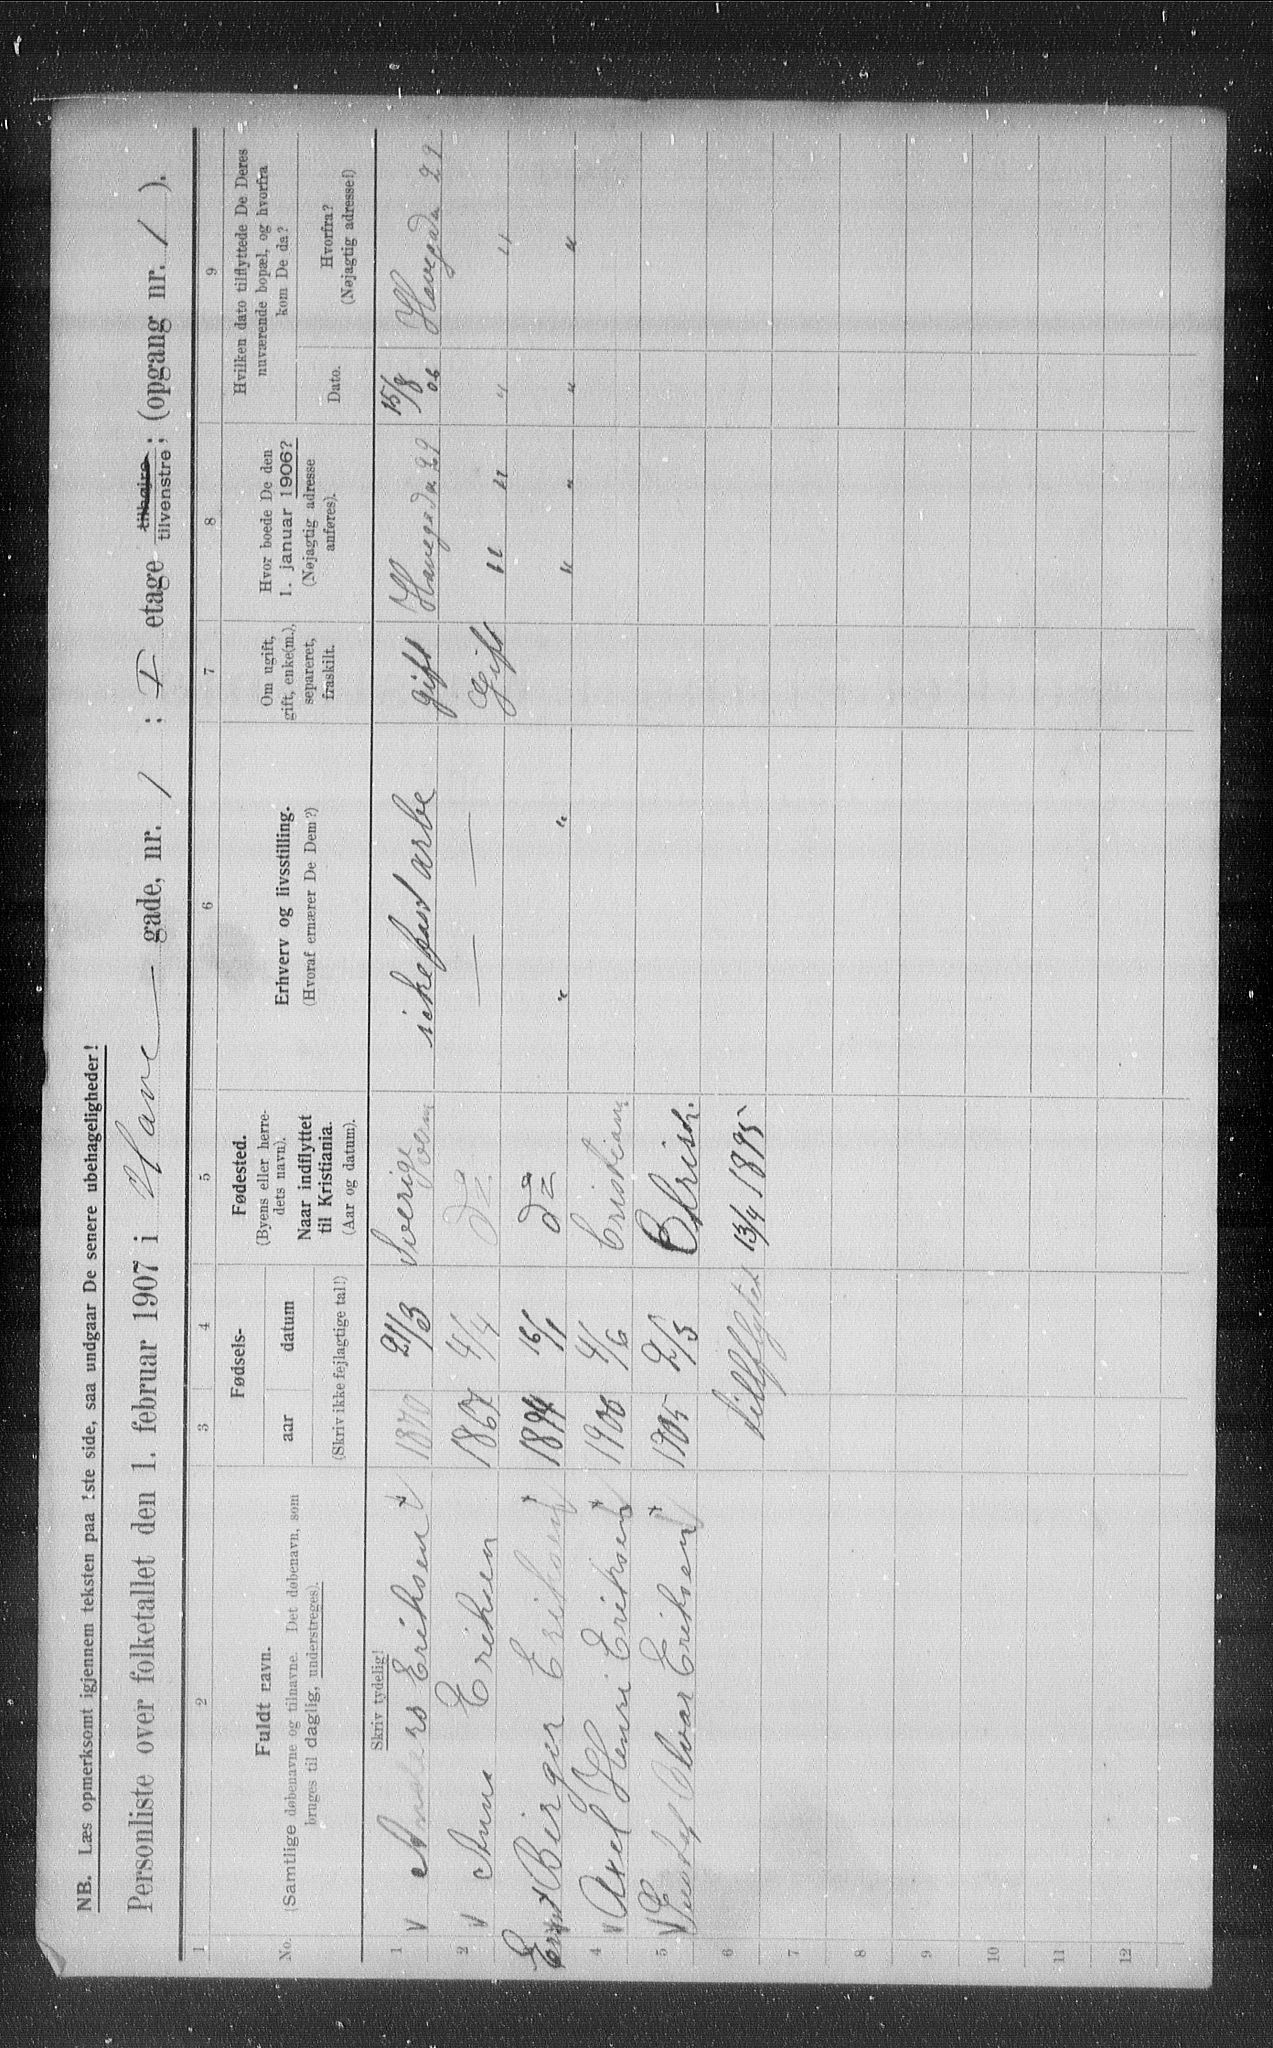 NB. Læs opmerksomt igjennem teksten paa 1ste side, saa undgaar De senere ubehageligheder!
Personliste over folketallet den 1. februar 1907 i Have gade, nr. 1 : I etage tilhøjre tilvenstre; (opgang nr. 1 ).
1 2 3 4 5 6 7 8 9
No.
Fuldt navn.
(Samtlige døbenavne og tilnavne. Det døbenavn, som
bruges til daglig, understreges).
Fødsels-
aar datum
(Skriv ikke fejlagtige tal!)
Fødested.
(Byens eller herre-
dets navn).
Naar indflyttet
til Kristiania.
(Aar og datum).
Erhverv og livsstilling.
(Hvoraf ernærer De Dem?)
Om ugift,
gift, enke(m.),
separeret,
fraskilt.
Hvor boede De den
1. januar 1906?
(Nøjagtig adresse
anføres).
Hvilken dato tilflyttede De Deres
nuværende bopæl, og hvorfra
kom De da?
Dato.
Hvorfra?
(Nøjagtig adresse!)
Skriv tydelig!
1 Anders Eriksen 1870 21/3 Sverige gift Havegada 29 15/8 06 Havegada 29
2 Anna Eriksen 1867 4/4 Do — — — Gift " " " "
Birger Eriksen 1894 16/1 Do " " " " " "
4 Axel Henri Eriksen 1900 4/6 Cristiania
5 Gustaf Alvar Eriksen 1905 2/3 Chrisch.
6 tillflyttet 13/4 1895
7
8
9
10
11
12